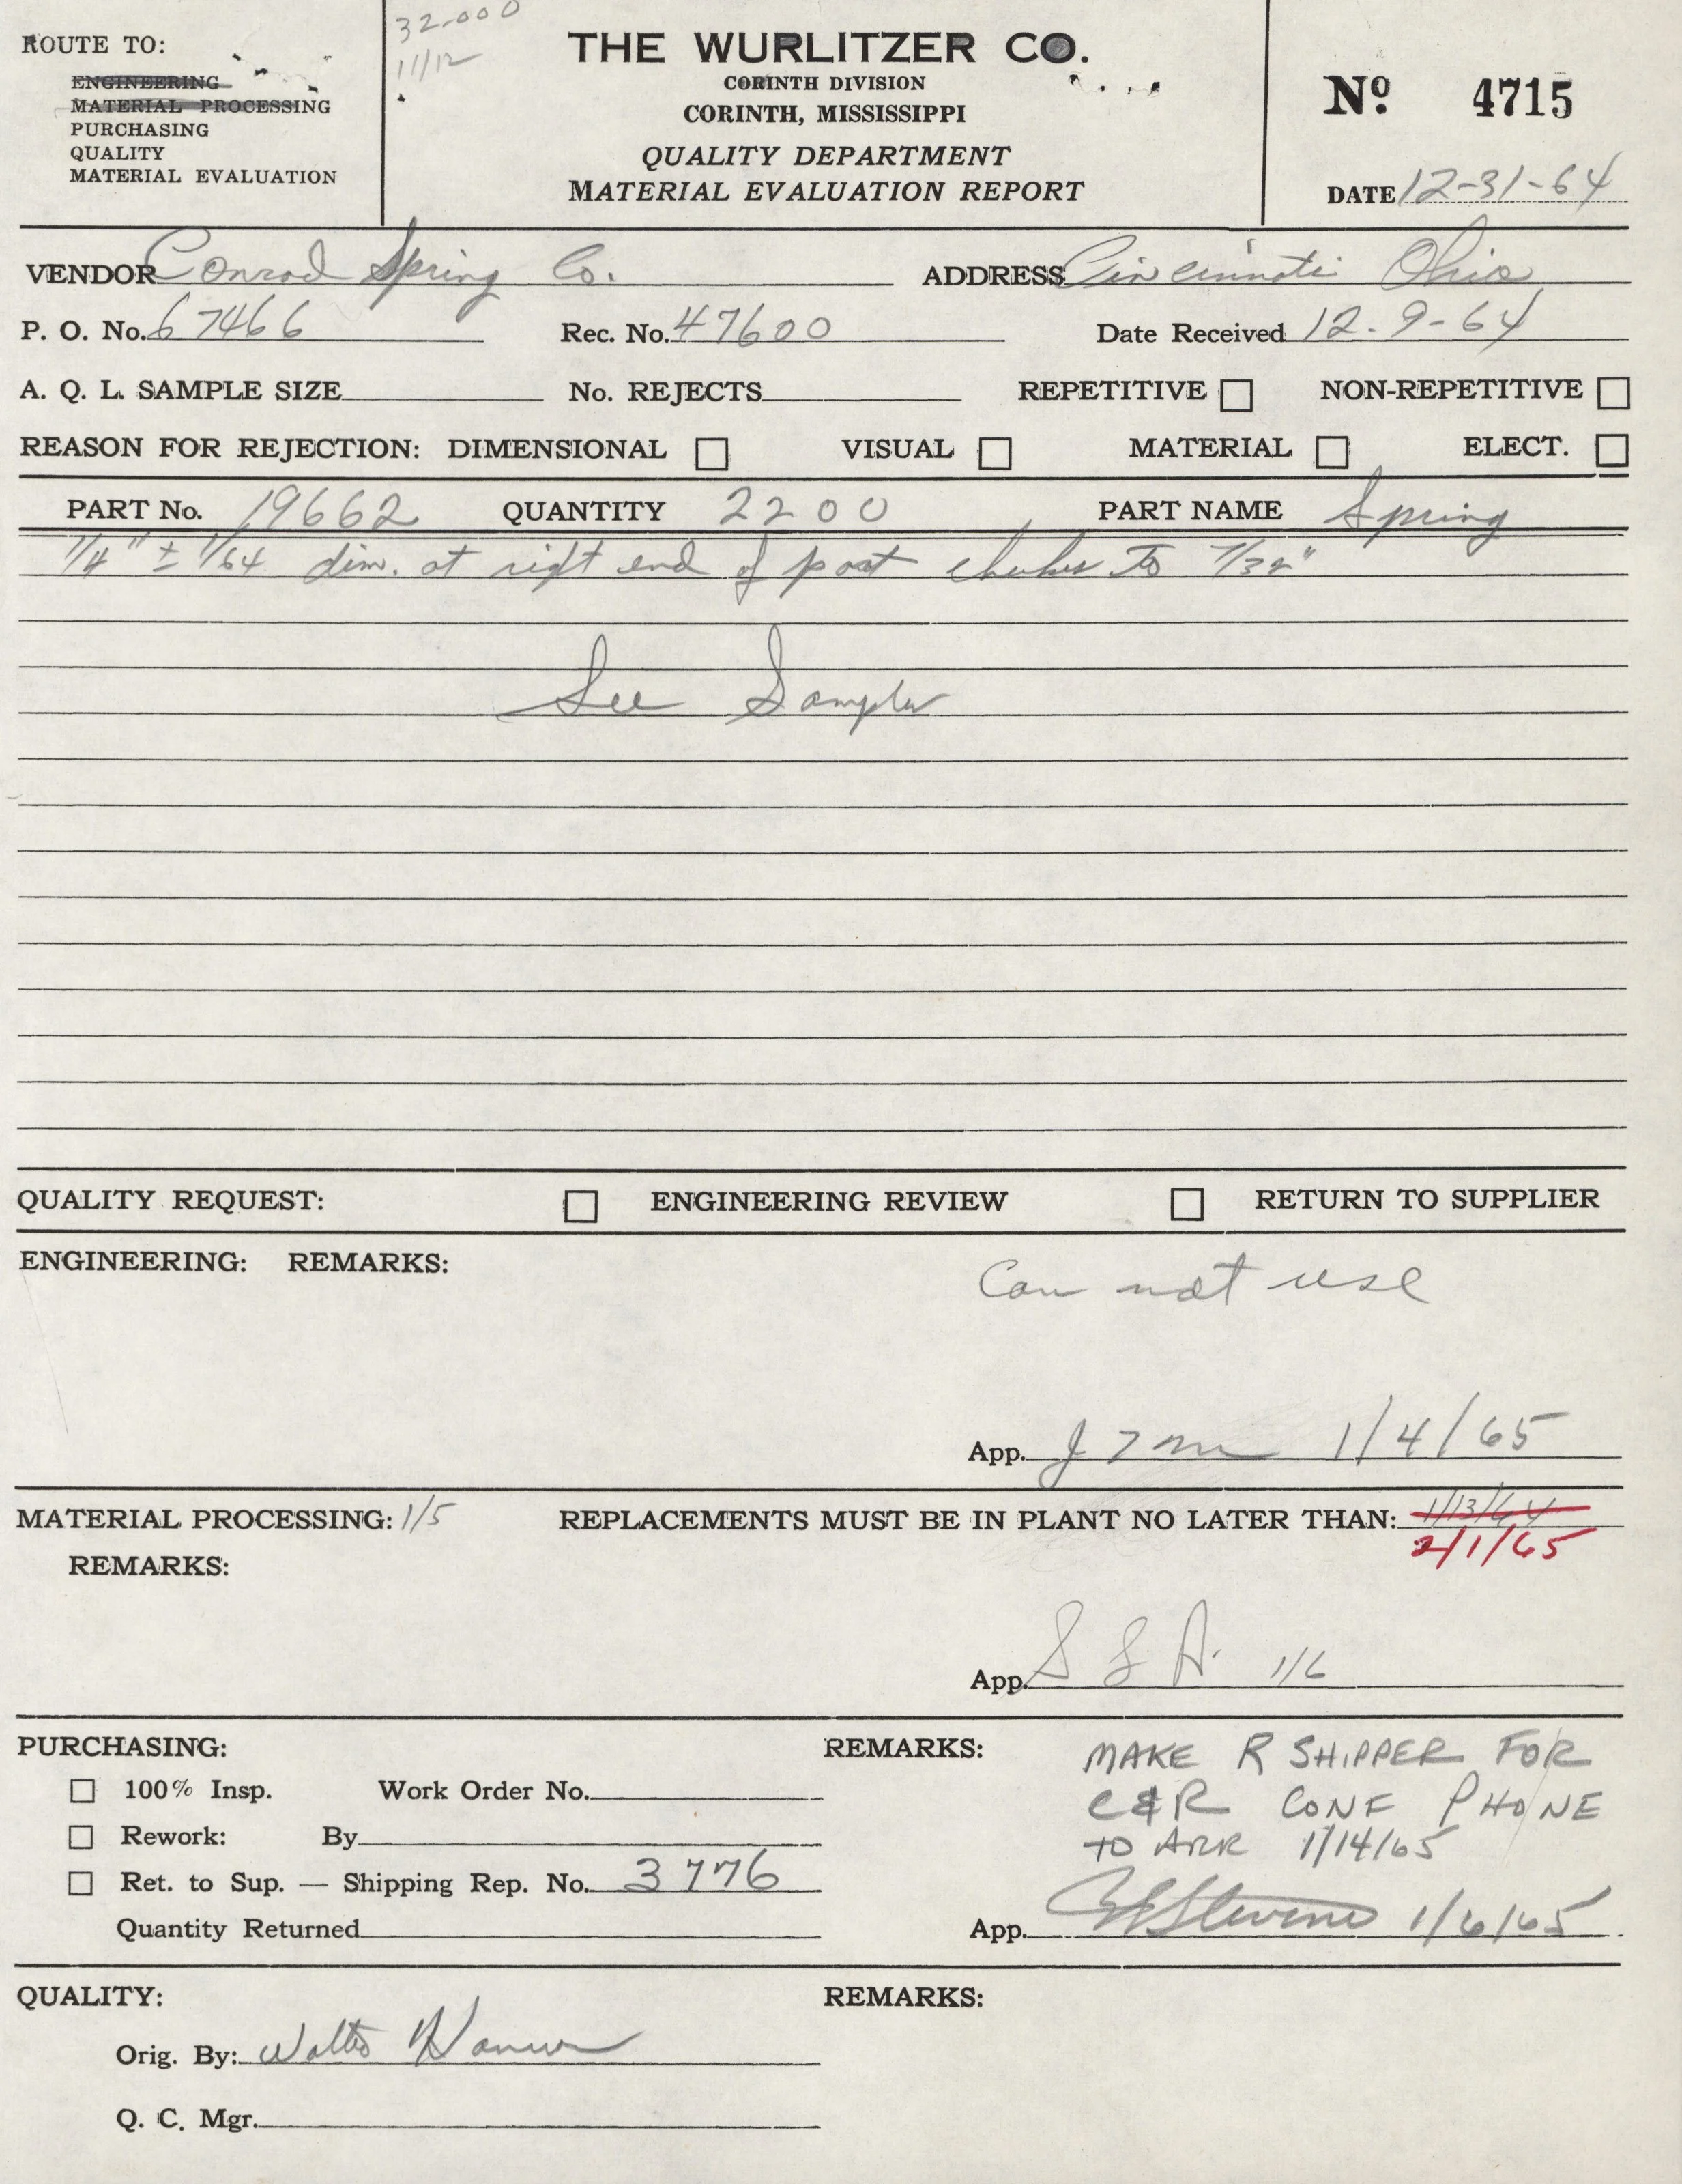 32-000
11/12
ROUTE TO:
ENGINEERING
MATERIAL PROCESSING
PURCHASING
QUALITY
MATERIAL EVALUATION
THE WURLITZER CO.
CORINTH DIVISION
CORINTH, MISSISSIPPI
QUALITY DEPARTMENT
MATERIAL EVALUATION REPORT
No. 4715
DATE 12-31-64
VENDOR Conrad Spring Co. ADDRESS Cincinnati Ohio
P. O. No. 67466 Rec. No. 47600 Date Received 12-9-64
A. Q. L. SAMPLE SIZE No. REJECTS REPETITIVE NON-REPETITIVE
REASON FOR REJECTION: DIMENSIONAL VISUAL MATERIAL ELECT.
PART No. 19662 QUANTITY 2200 PART NAME Spring
1/4" ± 1/64 dim. at right end of part checks to 7/32"
See Sample
QUALITY REQUEST: ENGINEERING REVIEW RETURN TO SUPPLIER
ENGINEERING: REMARKS:
Can not use
App. 1/4/65
MATERIAL PROCESSING: 1/5 REPLACEMENTS MUST BE IN PLANT NO LATER THAN: 1/13/64
2/1/65
REMARKS:
App. 1/6
PURCHASING: REMARKS: MAKE R SHIPPER FOR
100% Insp. Work Order No. C&R CONF PHONE
Rework: By TO ARR 1/14/65
Ret. to Sup. — Shipping Rep. No. 3776
Quantity Returned App. Stevens 1/6/65
QUALITY: REMARKS:
Orig. By: Walter
Q. C. Mgr.